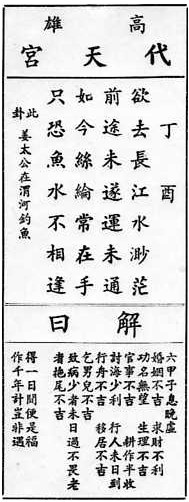 高雄
代天宮
丁酉
欲去長江水渺茫
前途未遂運未通
如今絲綸常在手
只恐魚水不相逢
此卦 姜太公在渭河釣魚
解曰
六甲子息晚虛
婚姻不吉 求財不利
功名無望 生理不吉
官事不吉 耕作半收
討海少利 行人未日到
行舟不吉 移居不吉
乞男兒不吉
致病少者未日過不畏老
者拖尾不吉
得一日間便是福
作千年計豈非遇